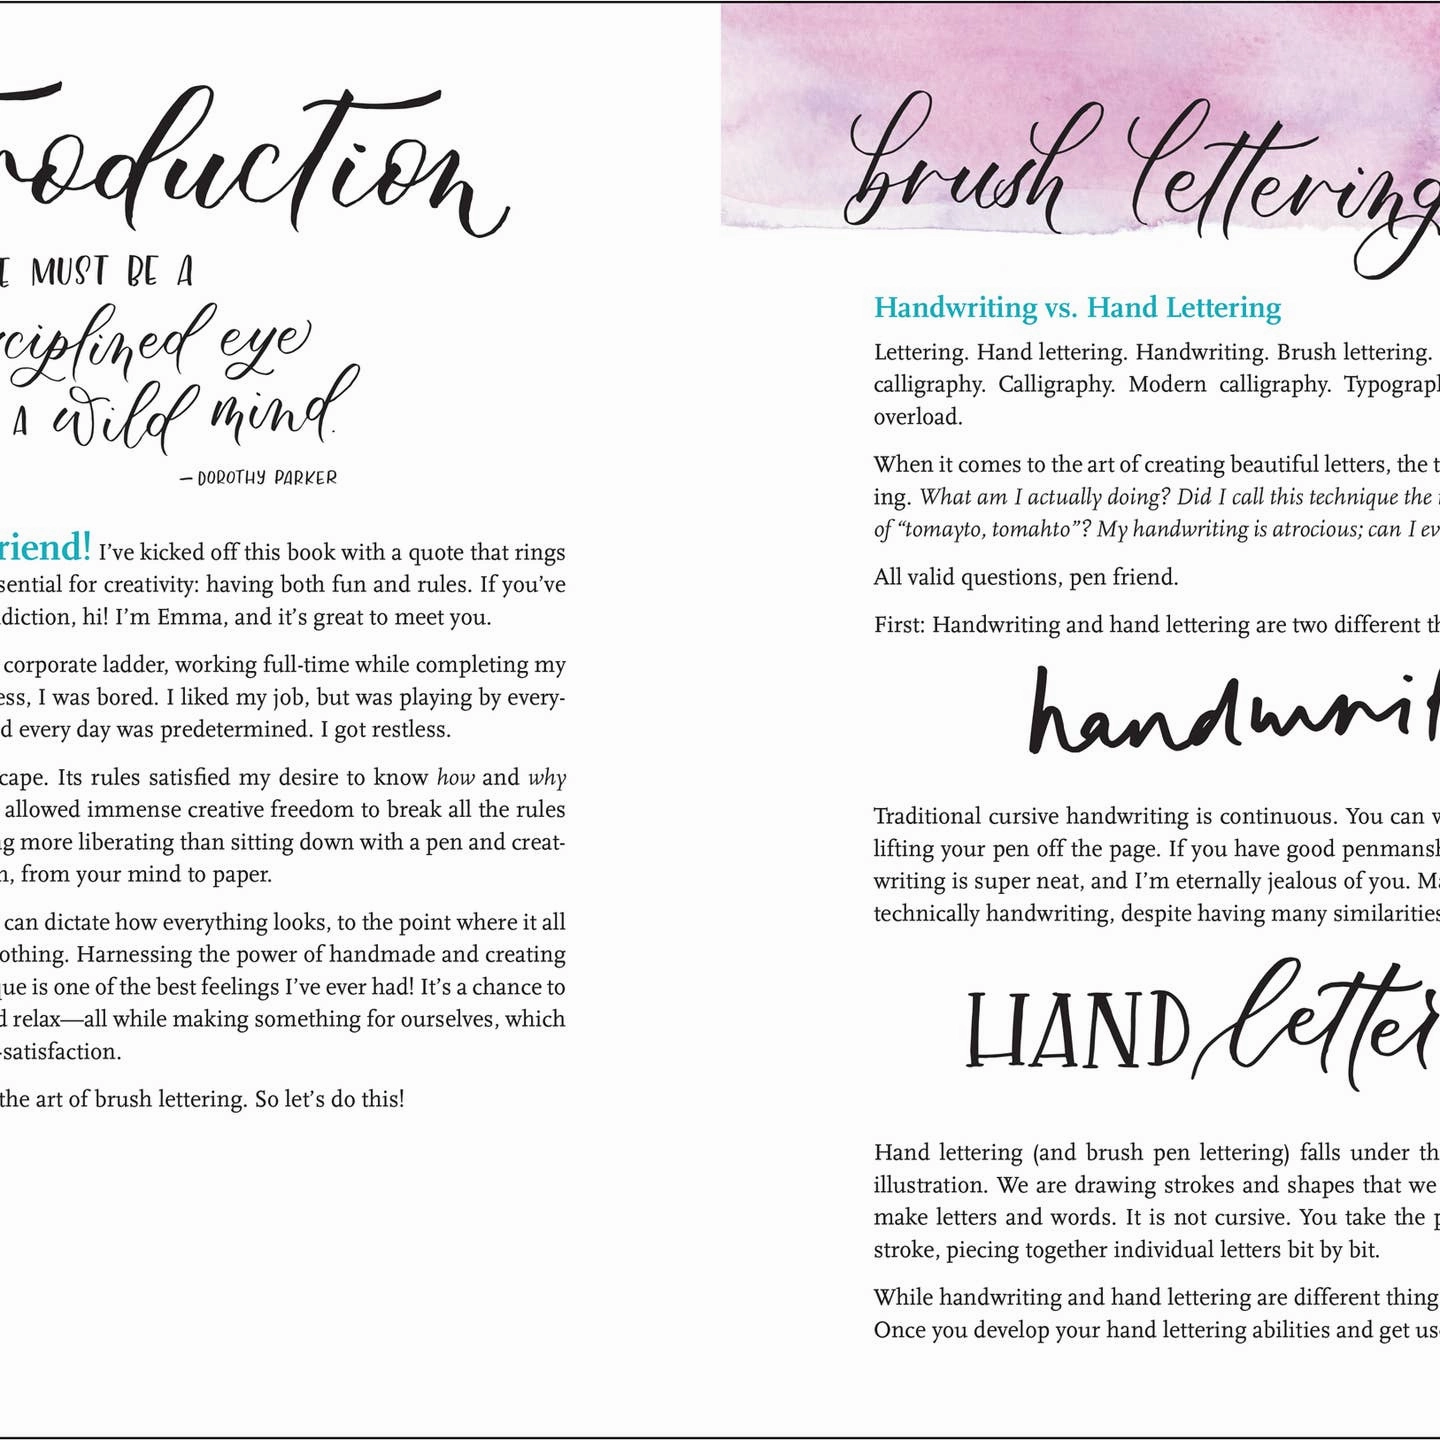 roduction
E MUST BE A
ciplined eye
A wild mind.
—DOROTHY PARKER
riend! I’ve kicked off this book with a quote that rings
sential for creativity: having both fun and rules. If you’ve
diction, hi! I’m Emma, and it’s great to meet you.
corporate ladder, working full-time while completing my
ess, I was bored. I liked my job, but was playing by every-
d every day was predetermined. I got restless.
cape. Its rules satisfied my desire to know how and why
allowed immense creative freedom to break all the rules
g more liberating than sitting down with a pen and creat-
n, from your mind to paper.
can dictate how everything looks, to the point where it all
othing. Harnessing the power of handmade and creating
que is one of the best feelings I’ve ever had! It’s a chance to
d relax—all while making something for ourselves, which
-satisfaction.
the art of brush lettering. So let’s do this!
brush lettering
Handwriting vs. Hand Lettering
Lettering. Hand lettering. Handwriting. Brush lettering.
calligraphy. Calligraphy. Modern calligraphy. Typograph
overload.
When it comes to the art of creating beautiful letters, the t
ing. What am I actually doing? Did I call this technique the
of “tomayto, tomahto”? My handwriting is atrocious; can I ev
All valid questions, pen friend.
First: Handwriting and hand lettering are two different th
handwrit
Traditional cursive handwriting is continuous. You can w
lifting your pen off the page. If you have good penmansh
writing is super neat, and I’m eternally jealous of you. Ma
technically handwriting, despite having many similarities
HAND letter
Hand lettering (and brush pen lettering) falls under th
illustration. We are drawing strokes and shapes that we
make letters and words. It is not cursive. You take the p
stroke, piecing together individual letters bit by bit.
While handwriting and hand lettering are different thing
Once you develop your hand lettering abilities and get us